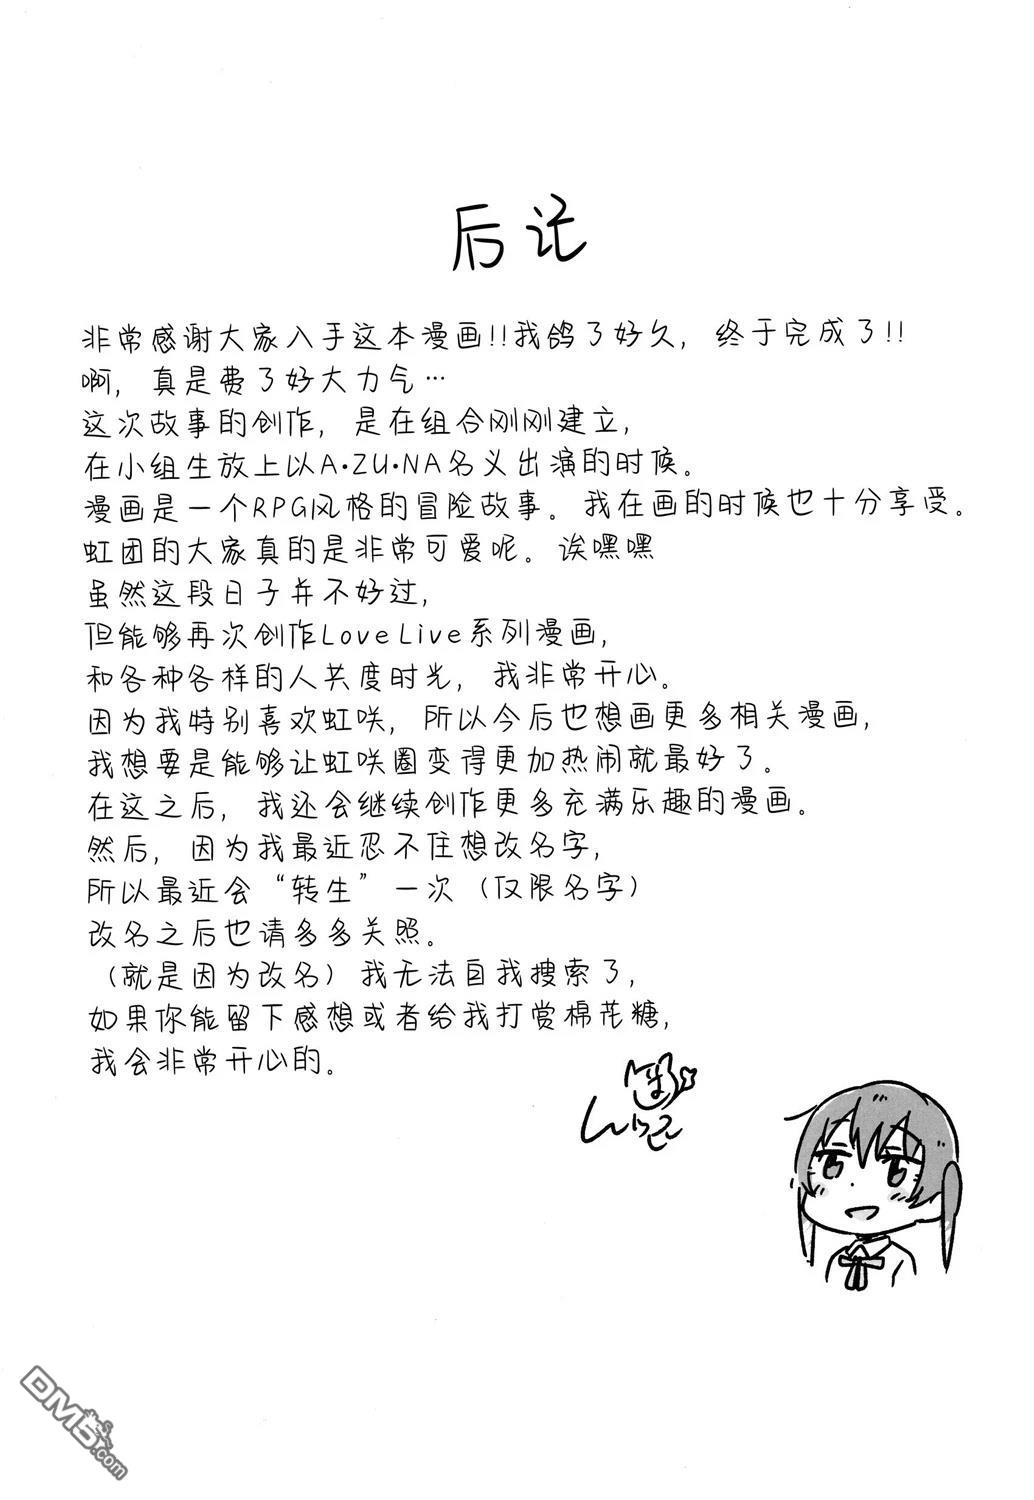 后记
非常感谢大家入手这本漫画!!我鸽了好久，终于完成了!!
啊，真是费了好大力气…
这次故事的创作，是在组合刚刚建立，
在小组生放上以A·ZU·NA名义出演的时候。
漫画是一个RPG风格的冒险故事。我在画的时候也十分享受。
虹团的大家真的是非常可爱呢。诶嘿嘿
虽然这段日子并不好过，
但能够再次创作LoveLive系列漫画，
和各种各样的人共度时光，我非常开心。
因为我特别喜欢虹咲，所以今后也想画更多相关漫画，
我想要是能够让虹咲圈变得更加热闹就最好了。
在这之后，我还会继续创作更多充满乐趣的漫画。
然后，因为我最近忍不住想改名字，
所以最近会“转生”一次（仅限名字）
改名之后也请多多关照。
（就是因为改名）我无法自我搜索了，
如果你能留下感想或者给我打赏棉花糖，
我会非常开心的。
DM5.com